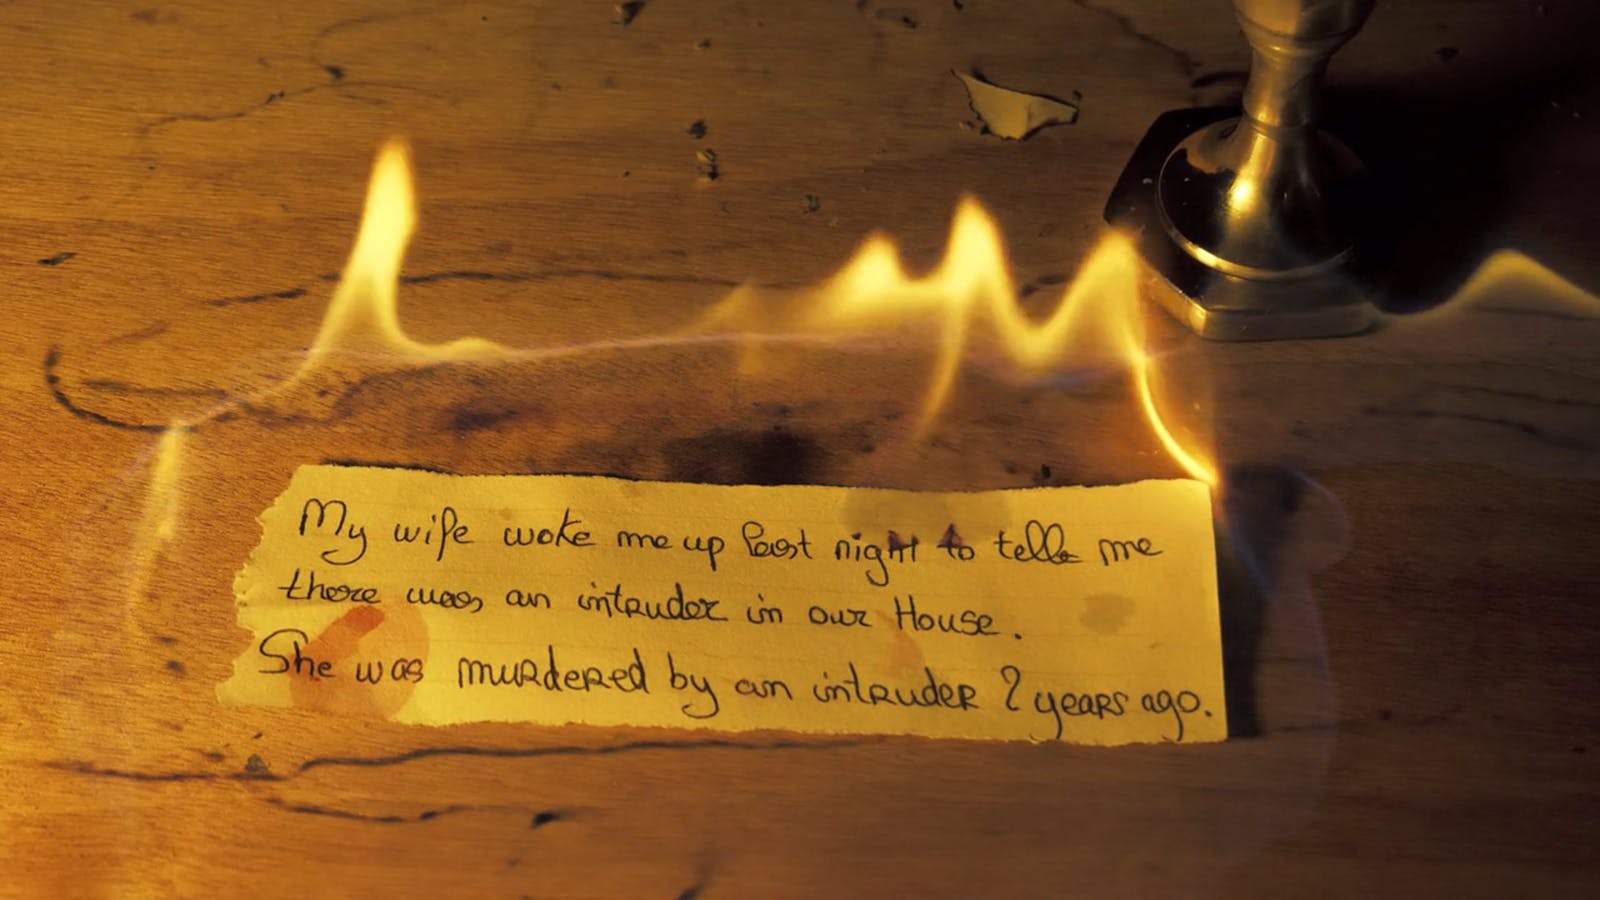 My wife woke me up last night to tell me
there was an intruder in our House.
She was murdered by an intruder 2 years ago.